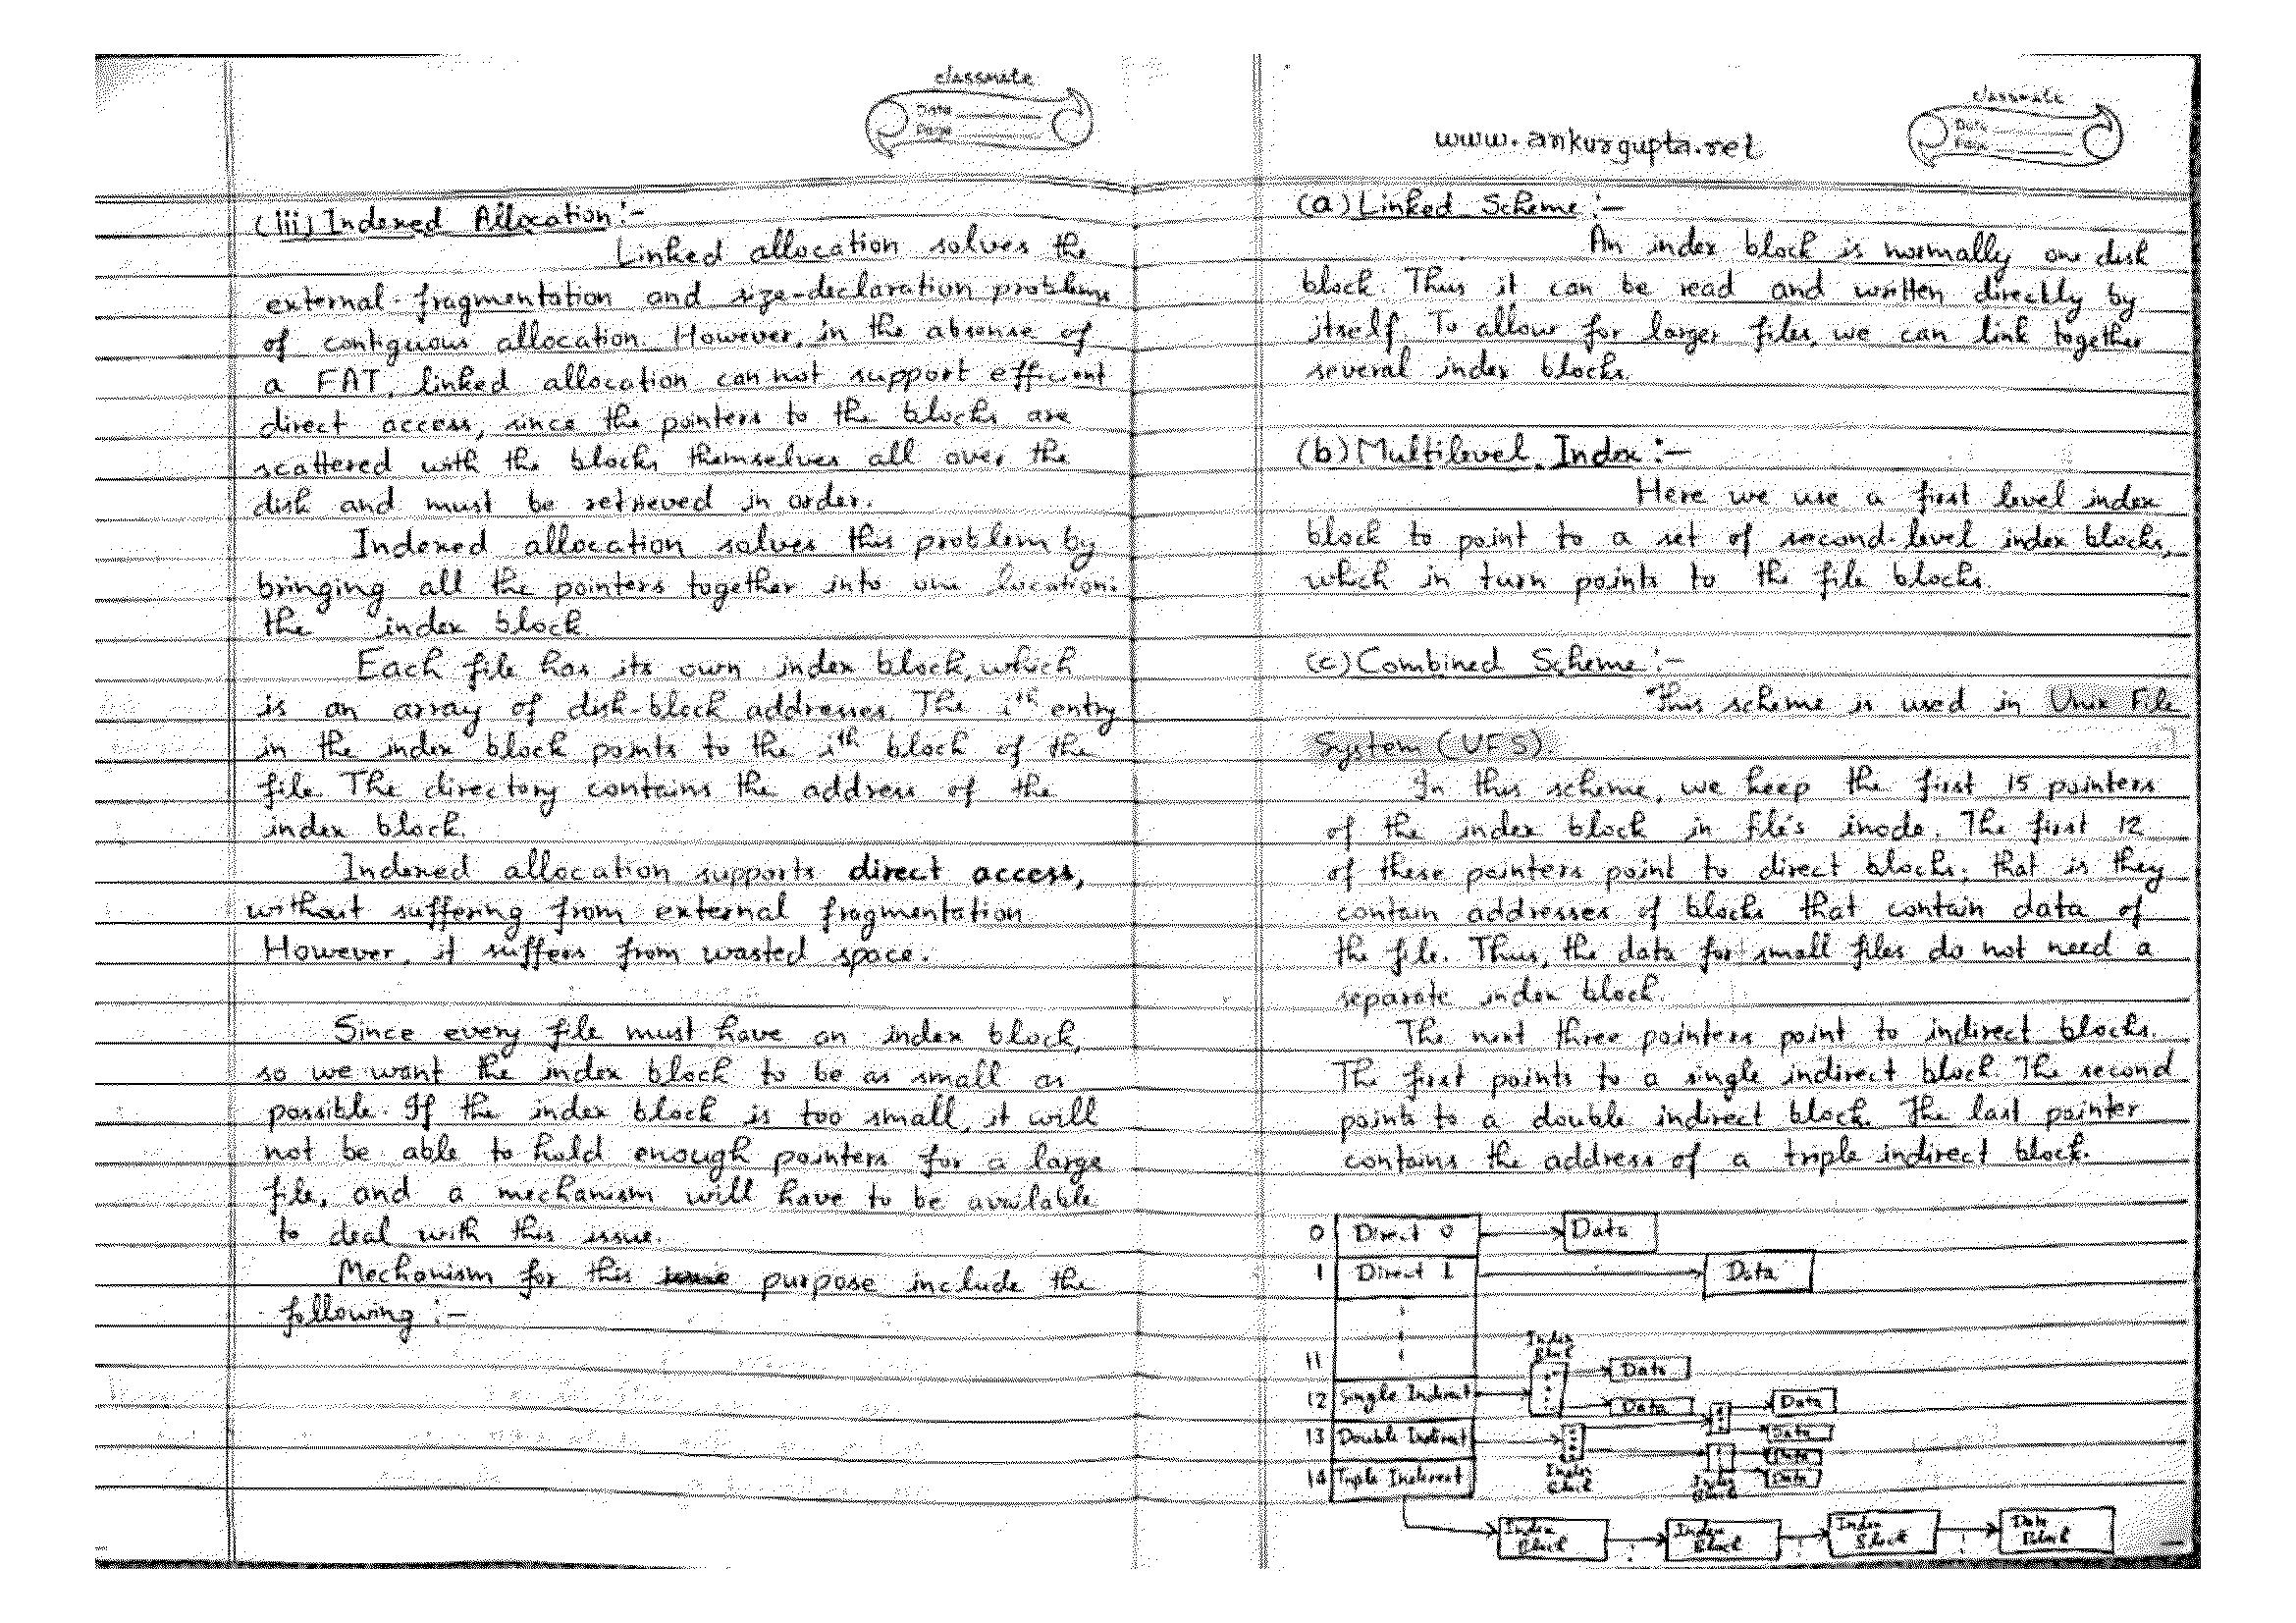 classmate
Date
Page
(iii) Indexed Allocation:-
Linked allocation solves the
external-fragmentation and size-declaration problems
of contiguous allocation. However, in the absense of
a FAT, linked allocation can not support efficient
direct access, since the pointers to the blocks are
scattered with the blocks themselves all over the
disk and must be retrieved in order.
Indexed allocation solves this problem by
bringing all the pointers together into one location:
the index block
Each file has its own index block, which
is an array of disk-block addresses. The ith entry
in the index block points to the ith block of the
file. The directory contains the address of the
index block.
Indexed allocation supports direct access,
without suffering from external fragmentation
However, it suffers from wasted space.
Since every file must have an index block,
so we want the index block to be as small as
possible. If the index block is too small, it will
not be able to hold enough pointers for a large
file, and a mechanism will have to be available
to deal with this issue.
Mechanism for this purpose include the
following :-
classmate
Date
Page
www.ankurgupta.net
(a) Linked Scheme :-
An index block is normally one disk
block. Thus it can be read and written directly by
itself. To allow for larger files, we can link together
several index blocks.
(b) Multilevel Index :-
Here we use a first level index
block to point to a set of second-level index blocks,
which in turn points to the file blocks.
(c) Combined Scheme :-
This scheme is used in Unix File
System (UFS).
In this scheme, we keep the first 15 pointers
of the index block in file's inode. The first 12
of these pointers point to direct blocks; that is they
contain addresses of blocks that contain data of
the file. Thus, the data for small files do not need a
separate index block.
The next three pointers point to indirect blocks.
The first points to a single indirect block. The second
points to a double indirect block. The last pointer
contains the address of a triple indirect block.
0 Direct 0 Data
1 Direct 1 Data
11
Index
Block
Data
12 Single Indirect
Data
Data
13 Double Indirect
Data
Data
14 Triple Indirect
Data
Index
Block
Index
Block
Index
Block
Index
Block
Index
Block
Data
Block